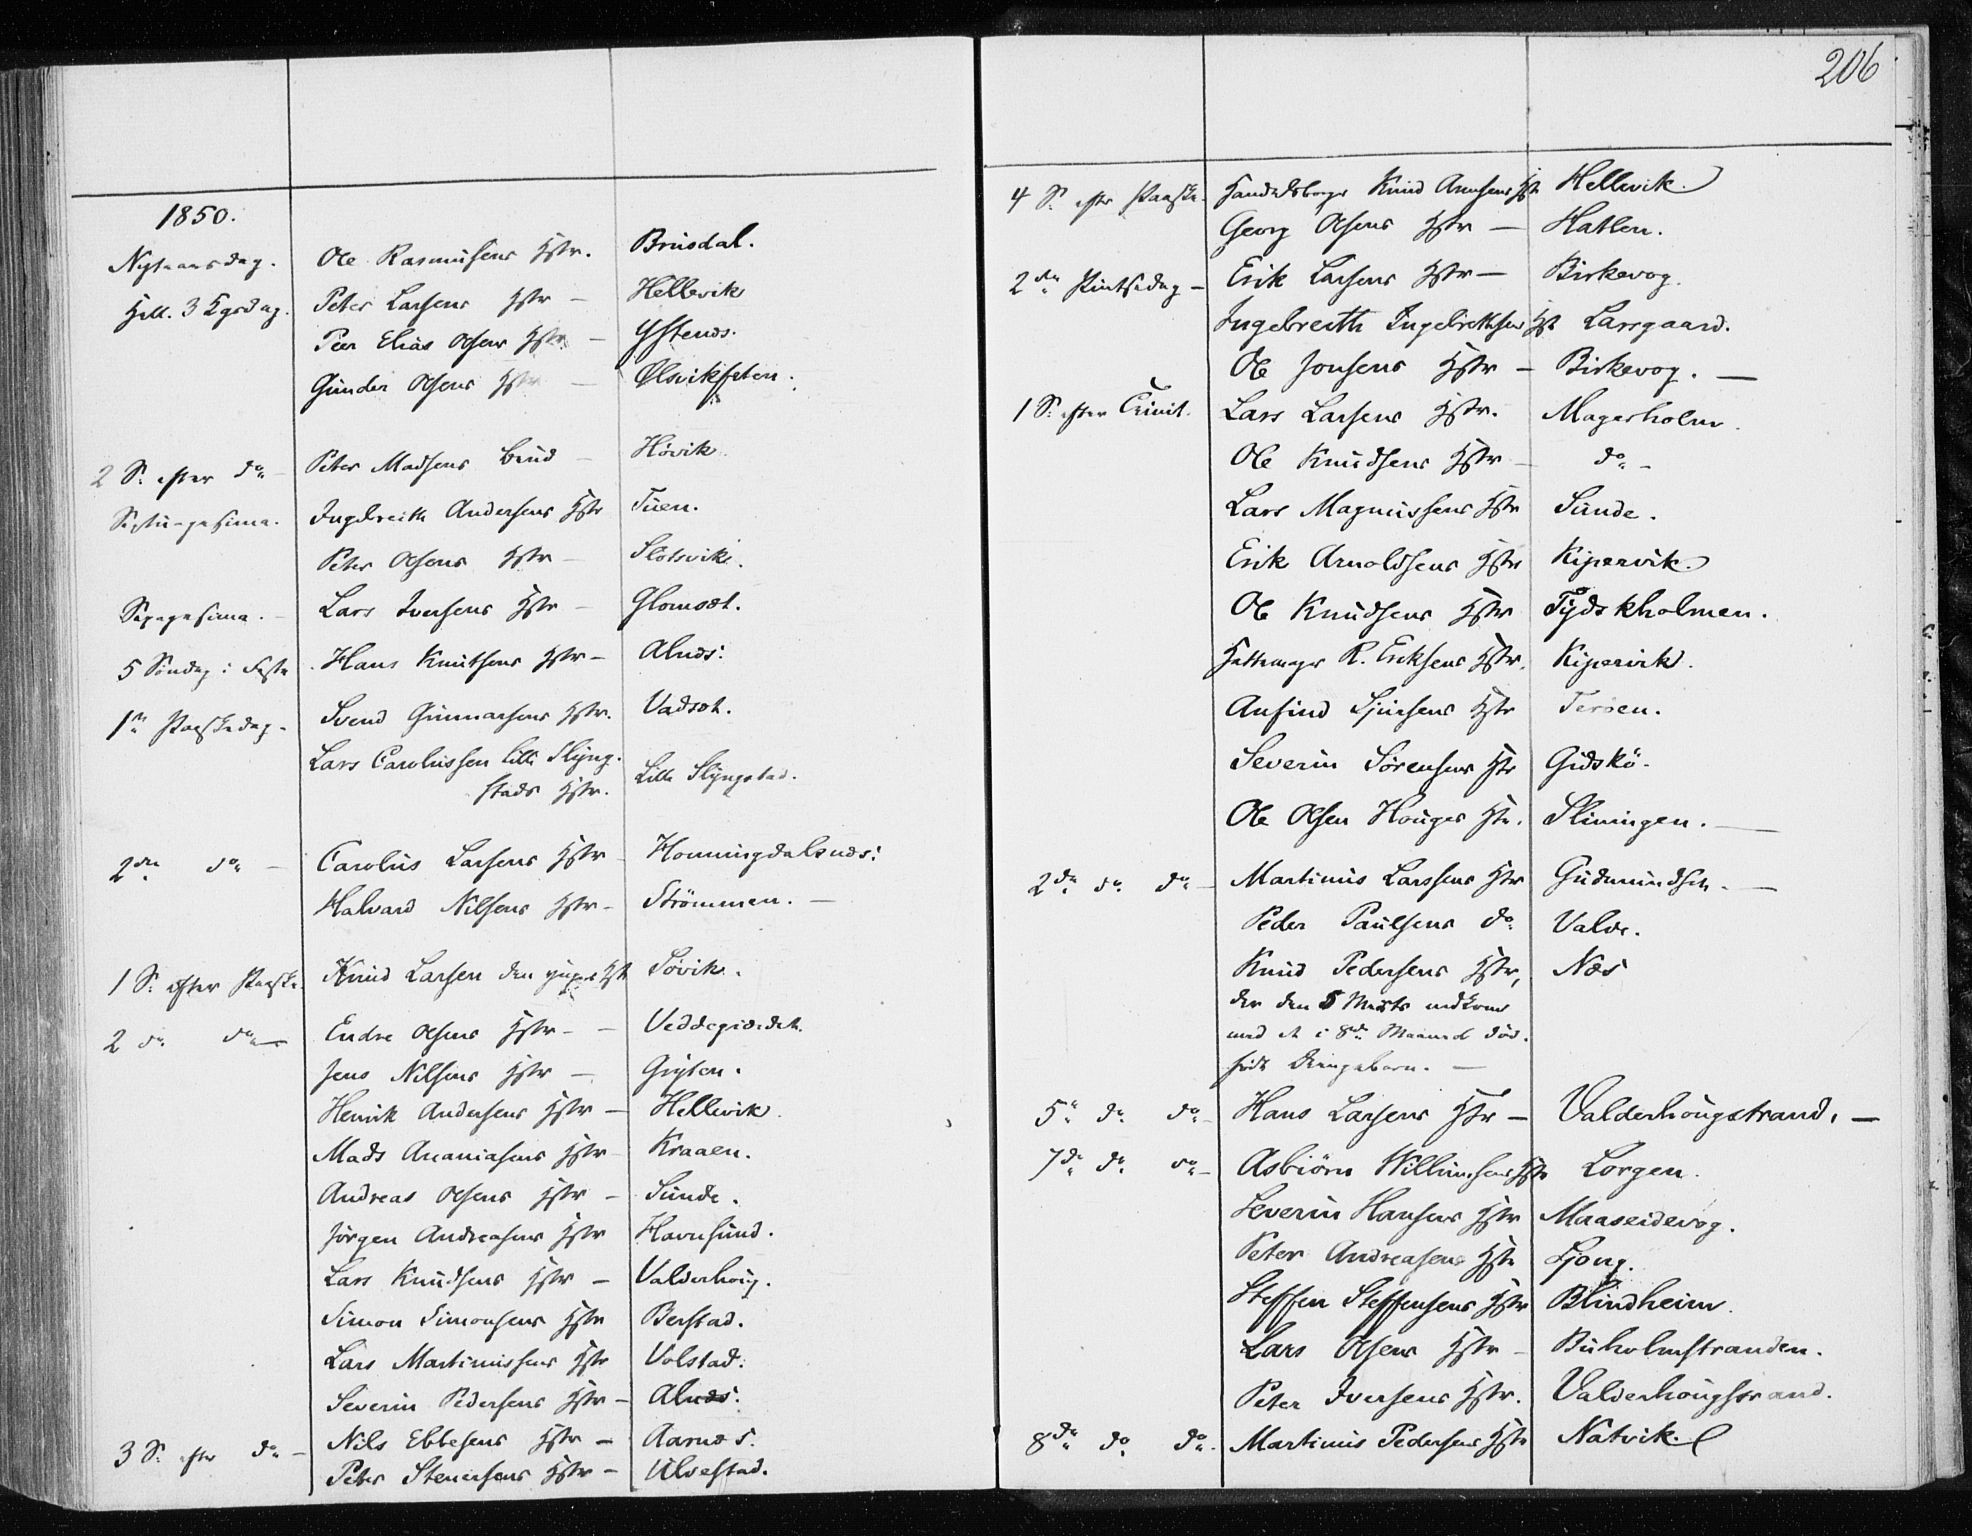 206
1850.
Nytaarsdag. Ole Rasmusens Hstr. Brusdal.
Hell. 3 Kgrsdag. Peter Larsens Hstr — Hellevik
Peer Elias Olsens Hstr — Ystenæs.
Gunder Olsens Hstr — Ølsvik
2 S. efter do — Peter Madsens — Høvik
Septuagesima. Ingebreith Andersens Hstr Tuen.
Peter Olsens Hstr — Slotsvik.
Sexagesima. — Lars Iversens Hstr — Glomsæt.
5 Søndag i Faste Hans Knutsens Hstr — Alnæs.
1ste Paaskedag — Svend Gunnarsens Hstr. Vadsæt.
Lars Carolussen lille Slyng-
stads Hstr. Lille Slyngstad.
2den do — Carolus Larsens Hstr Honningdalsnæs.
Halvard Nilsens Hstr — Strömmen. —
1 S. efter Paaske. Knud Larsen den yngre Hst Søvik.
2 do do — Endre Olsens Hstr —
Jens Nilsens Hstr — Gryten.
Henrik Andersens Hstr — Hellevik
Mads Ananiasens Hstr Kraaen.
Andreas Olsens Hstr — Sunde.
Jørgen Andreasens Hstr Havnsund.
Lars Knudsens Hstr — Valderhoug.
Simon Simonsens Hstr Berstad.
Lars Martinussens Hstr Volstad.
Severin Pedersens Hstr — Alnæs.
3 S. efter do — Nils Ebbesens Hstr — Aarnæs.
Peter Stenersens Hstr — Ulvestad.
4 S. efter Paaske. Handelsborger Knud Hst Hellevik.
Georg Olsens Hstr — Hatlen.
2den Pintsedag — Erik Larsens Hstr — Birkevog.
Ingebreith Ingebrethsens Hst Larsgaard.
Ole Jonsens Hstr — Birkevog. —
1 S. efter Trinit. Lars Larsens Hstr. Magerholm.
Ole Knudsens Hstr — do —
Lars Magnussens Hstr Sunde.
Erik Arnoldsens Hstr Kipervik.
Ole Knudsens Hstr Tydskholmen.
Hattemager R. Eriksens Hstr. Kipervik.
Anfind Sjursens Hstr Terøen.
Severin Sørensens Hstr Gidskö.
Ole Olsen Houges Hstr. Sliningen. —
2den do do — Martinus Larssens Hstr Gudmundset. —
Peder Paulsens do Valde.
Knud Pedersens Hstr, Næs
der den 5 Marts nedkom
med et i 8de Maaned død-
født Drengebarn. —
5te do do — Hans Larsens Hstr — Valderhougstrand. —
7de do do — Asbiörn Willumsens Hstr Lorgen.
Severin Hansens Hstr Maaseidevog.
Peter Andreasens Hstr Ljong.
Steffen Steffensens Hstr Blindheim.
Lars Olsens Hstr — Buholmstranden.
Peter Iversens Hstr. Valderhougstrand.
8de do do. Martinus Pedersens Hstr Natvik.